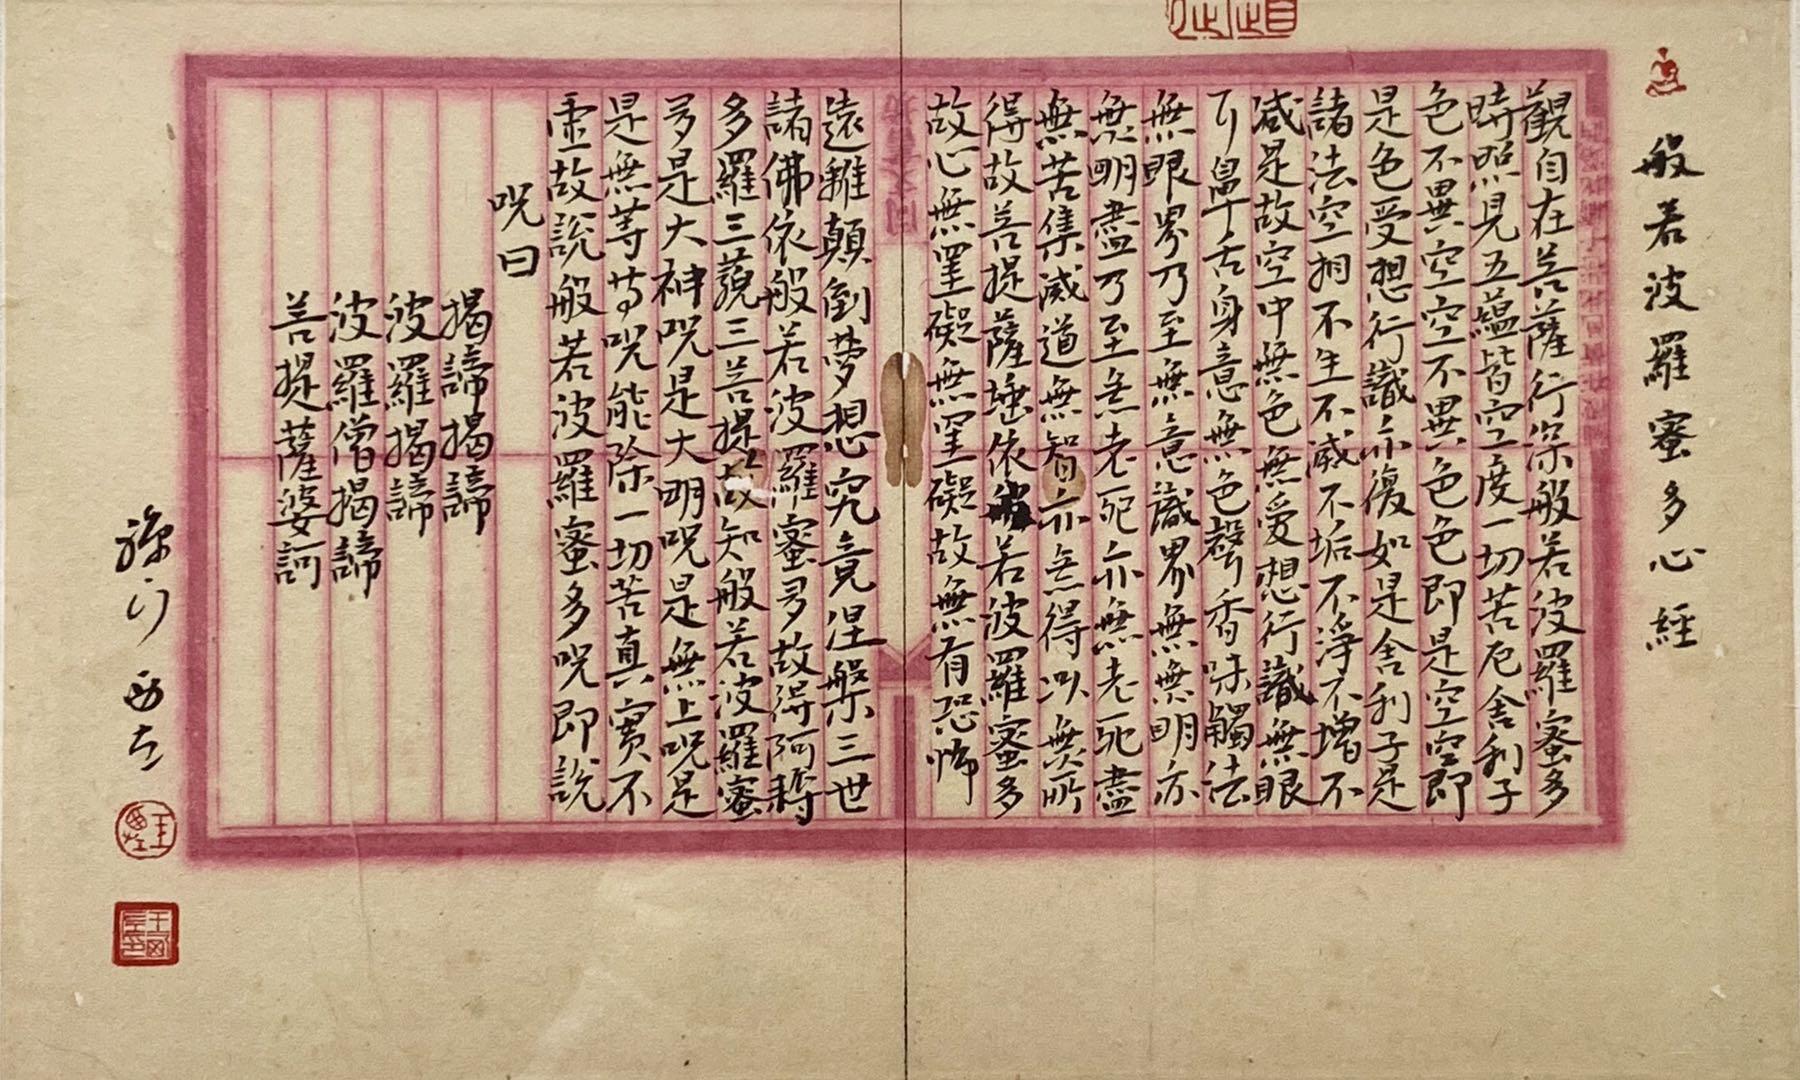 般若波羅蜜多心經
觀自在菩薩行深般若波羅蜜多
時照見五蘊皆空度一切苦厄舍利子
色不異空空不異色色即是空空即
是色受想行識亦復如是舍利子是
諸法空相不生不滅不垢不淨不增不
減是故空中無色無受想行識無眼
耳鼻舌身意無色聲香味觸法
無眼界乃至無意識界無無明亦
無明盡乃至无老死亦無老死盡
無苦集滅道無智亦无得以無所
得故菩提薩埵依般若波羅蜜多
故心無罣礙無罣礙故無有恐怖
遠離顛倒夢想究竟涅槃三世
諸佛依般若波羅蜜多故得阿耨
多羅三藐三菩提故知般若波羅蜜
多是大神呪是大明呪是無上呪是
是無等等呪能除一切苦真實不
虛故說般若波羅蜜多呪即說
呪曰
揭諦揭諦
波羅揭諦
波羅僧揭諦
菩提薩婆訶